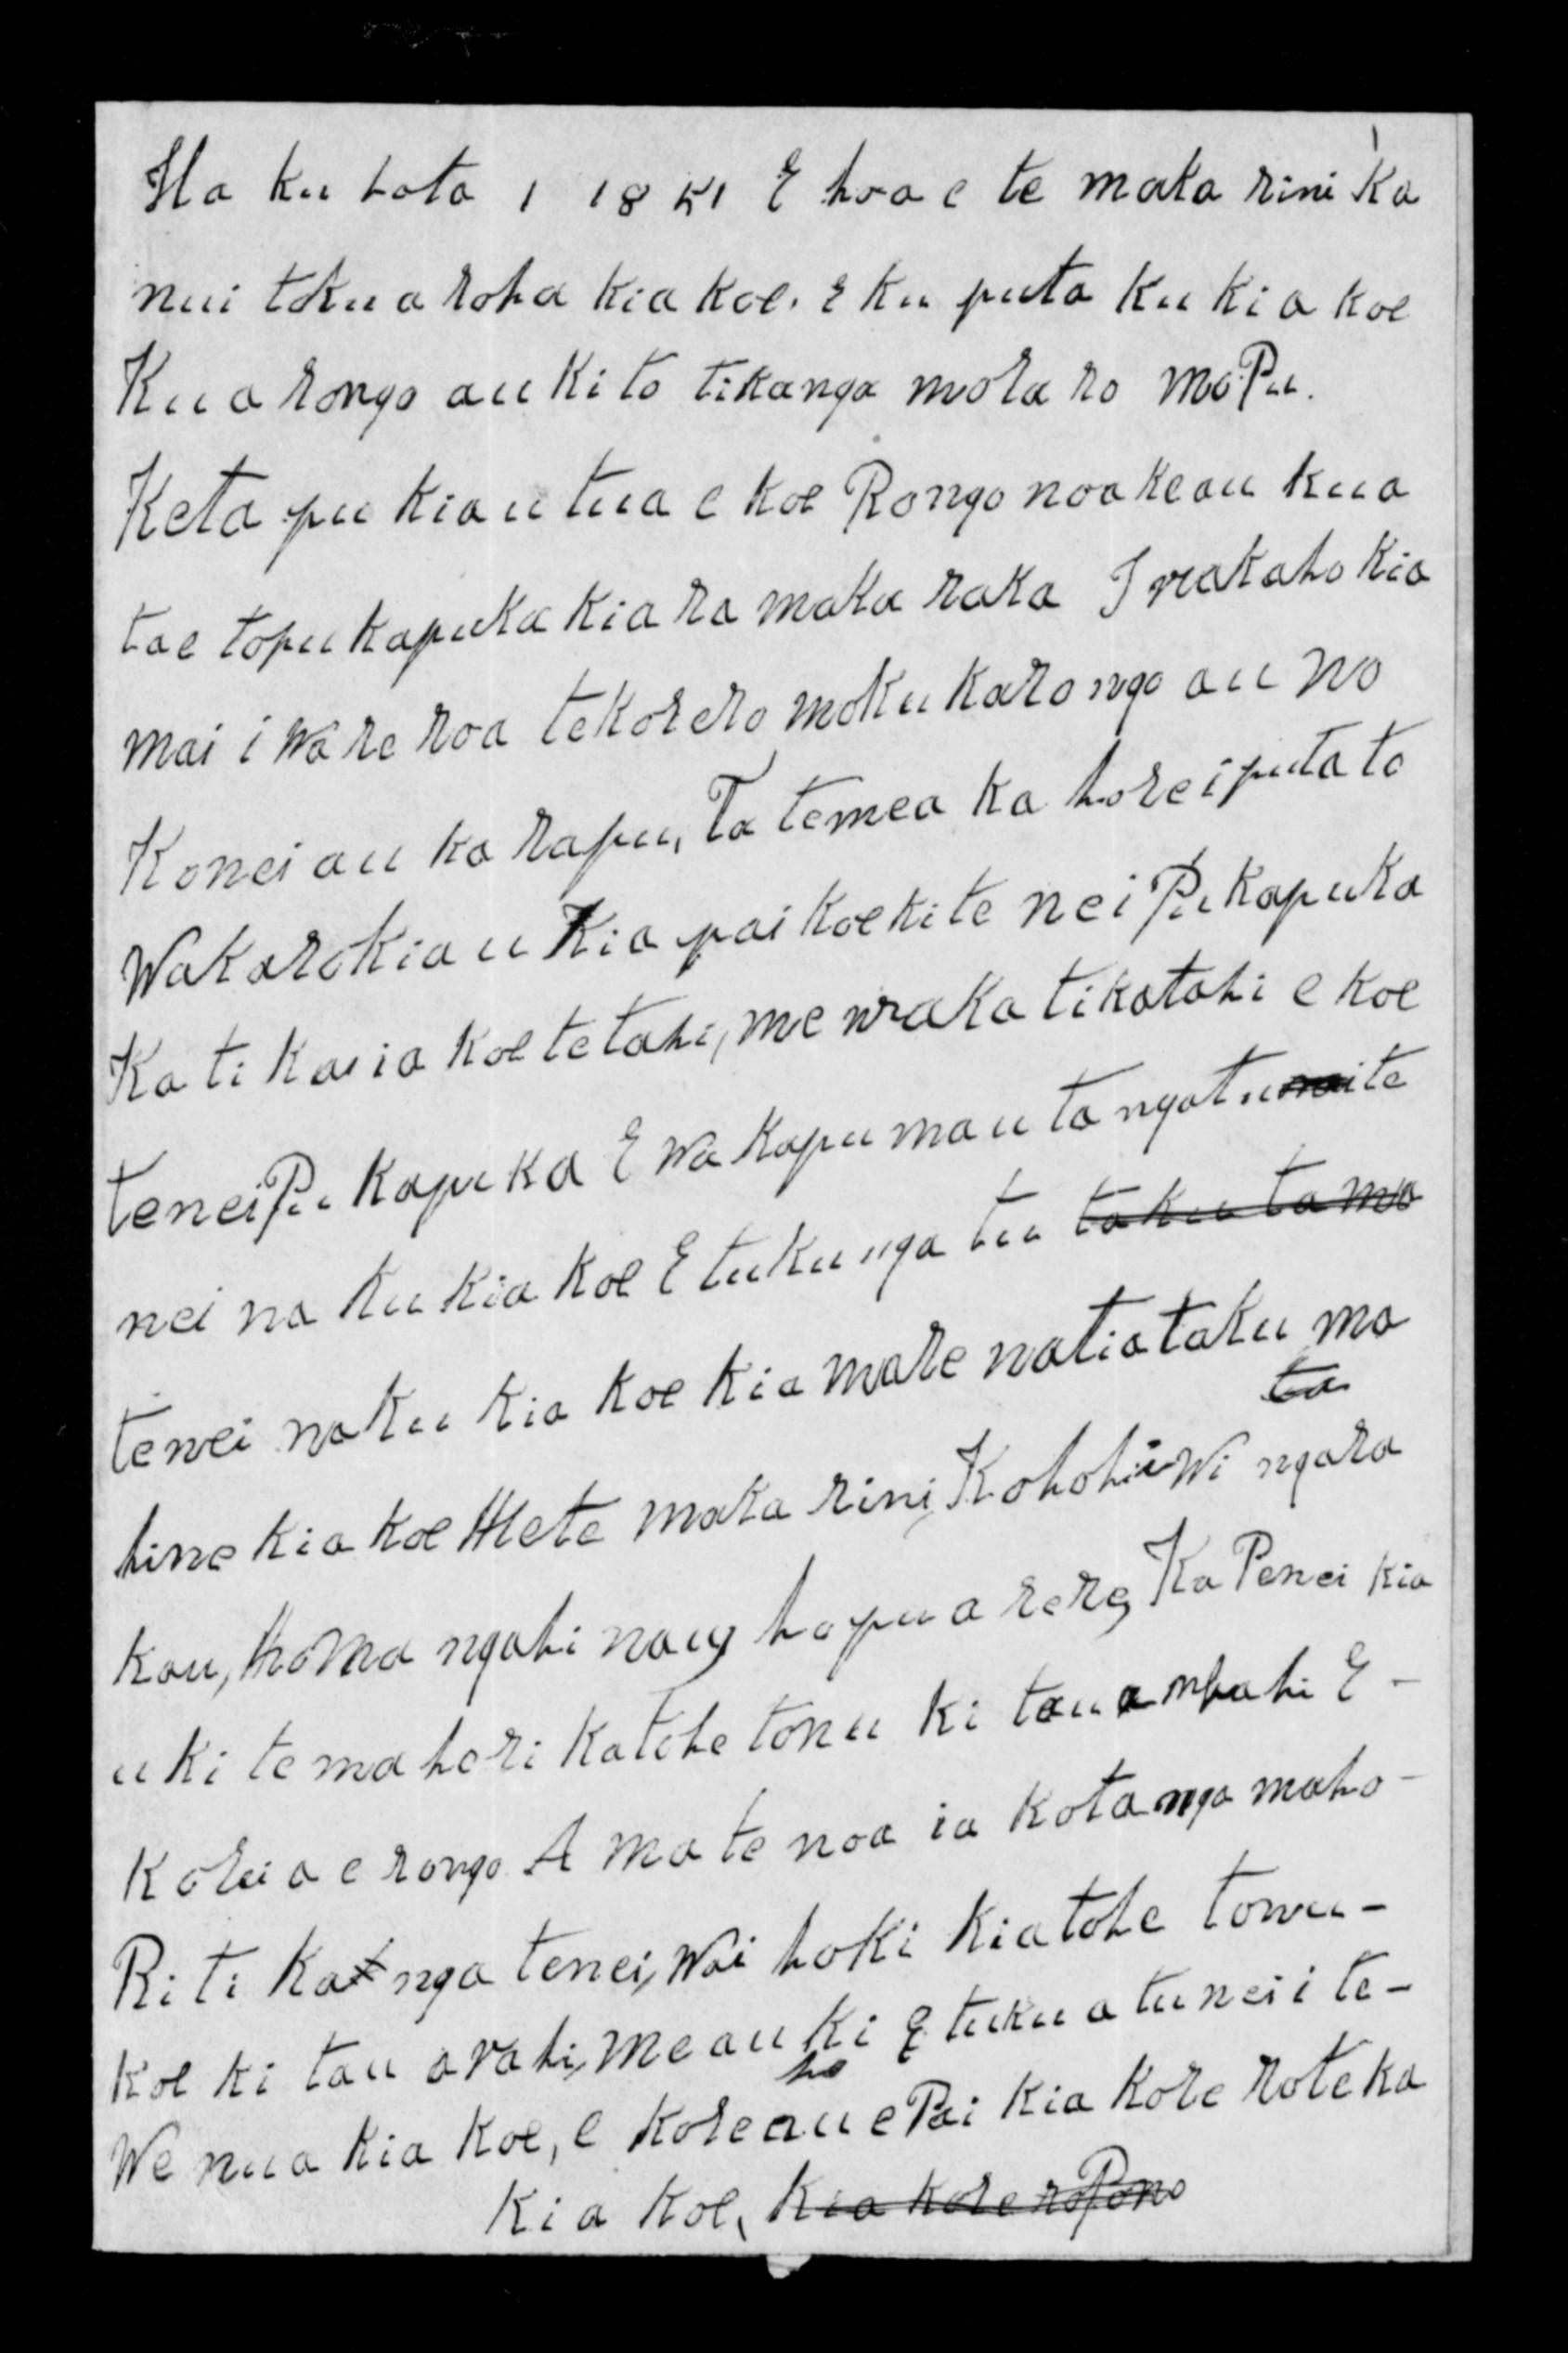 Ha ku hata 1 1851 E hoa e te maka rini Ka
nui toku a roha kia koe. E ku puta ku ki a koe
Kua rongo au ki to tikanga mora ro mo Pu.
Keta pu kia utua e koe Rongo noa ke au kua
tae to pukapuka kia ra maka raka I wakaho kia
mai i Ware roa te korero moku ka rongo au no
Konei au ka rapu, Ta temea ka hore i puta to
Wakaro kia u Kia pai koe ki te nei Pukapuka
Ka ti kai ia koe te tahi, me waka tika tahi e koe
tenei Pu kapu ka E wa kapu mau ta ngatu mai te
nei na ku kia koe E tuku nga tu taku ta ma
tenei naku kia koe kia mare natia taku ma
ta
hine kia koe Hete maka rini, Kohohi i Wi ngara
kau, Homa ngahi naug hapu a rere, Ka Penei kia
u ki te ma hori Ka tohe tonu ki tau a wahi E -
Kore ia e rongo A ma te noa ia Kota nga maho -
Ri ti Kat nga tenei, Wai hoki kia tohe tonu -
koe ki tau a vahi, me au ki E tuku a tu nei i te -
ho
We nua kia koe, e kore au e Pai kia kore ro te ka
Ki a koe, kia kore ro Pono